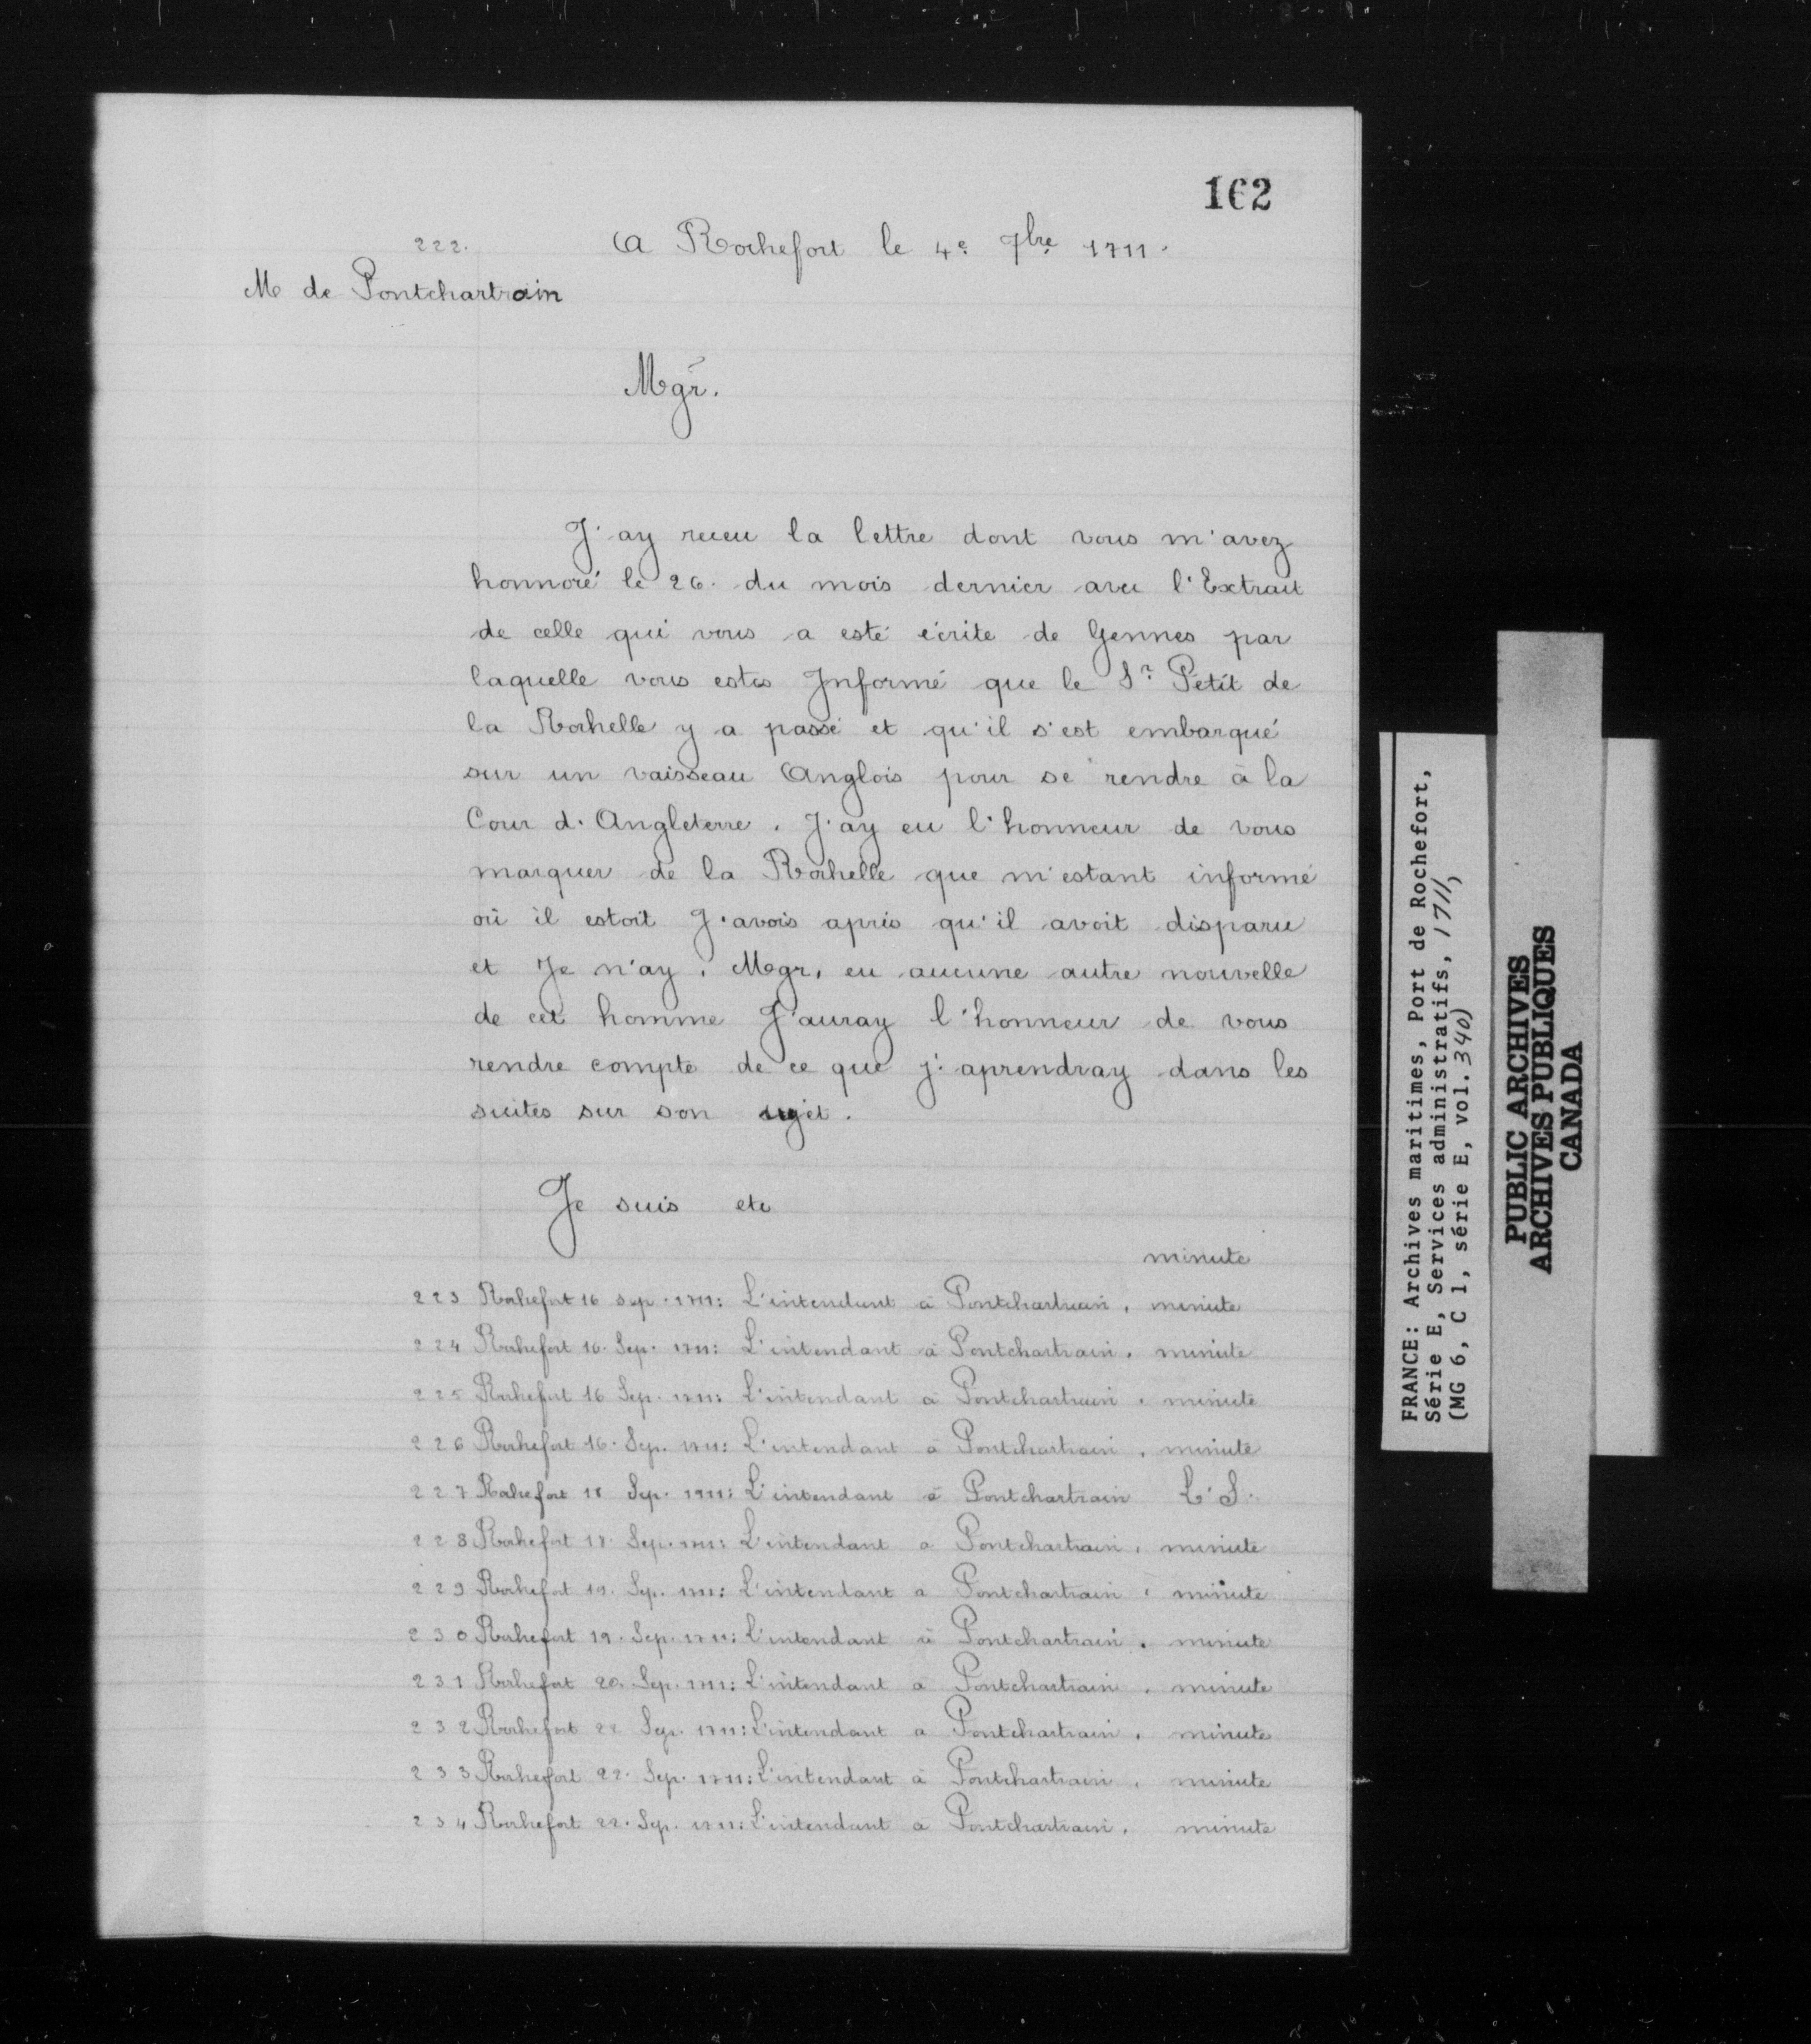 162
222.
A Rochefort le 4e 7bre 1711.
M de Pontchartrain
Mgr.
J'ay receu la lettre dont vous m'avez
honnoré le 26. du mois dernier avec l'Extrait
de celle qui vous a esté écrite de Gennes par
laquelle vous estes Informé que le Sr Petit de
la Rochelle y a passé et qu'il s'est embarqué
sur un vaisseau Anglois pour se rendre à la
Cour d'Angleterre. J'ay eu l'honneur de vous
marquer de la Rochelle que m'estant informé
où il estoit J'avois apris qu'il avoit disparu
et Je n'ay, Mgr, eu aucune autre nouvelle
de cet homme J'auray l'honneur de vous
rendre compte de ce que j'aprendray dans les
suites sur son sujet.
Je suis etc
minute
223 Rochefort 16 Sep. 1711: L'intendant à Pontchartrain. minute
224 Rochefort 16. Sep. 1711: L'intendant à Pontchartrain. minute
225 Rochefort 16 Sep. 1711: L'intendant à Pontchartrain. minute
226 Rochefort 16. Sep. 1711: L'intendant à Pontchartrain. minute
227 Rochefort 18 Sep. 1711: L'intendant à Pontchartrain L.S.
228 Rochefort 18. Sep. 1711: L'intendant a Pontchartrain. minute
229 Rochefort 19. Sep. 1711: L'intendant a Pontchartrain. minute
230 Rochefort 19. Sep. 1711: L'intendant à Pontchartrain. minute
231 Rochefort 20. Sep. 1711: L'intendant a Pontchartrain. minute
232 Rochefort 22 Sep. 1711: L'intendant a Pontchartrain. minute
233 Rochefort 22. Sep. 1711: L'intendant à Pontchartrain. minute
234 Rochefort 22. Sep. 1711: L'intendant a Pontchartrain. minute
FRANCE: Archives maritimes, Port de Rochefort,
Série E, Services administratifs, 1711,
(MG 6, C 1, série E, vol. 340)
PUBLIC ARCHIVES
ARCHIVES PUBLIQUES
CANADA